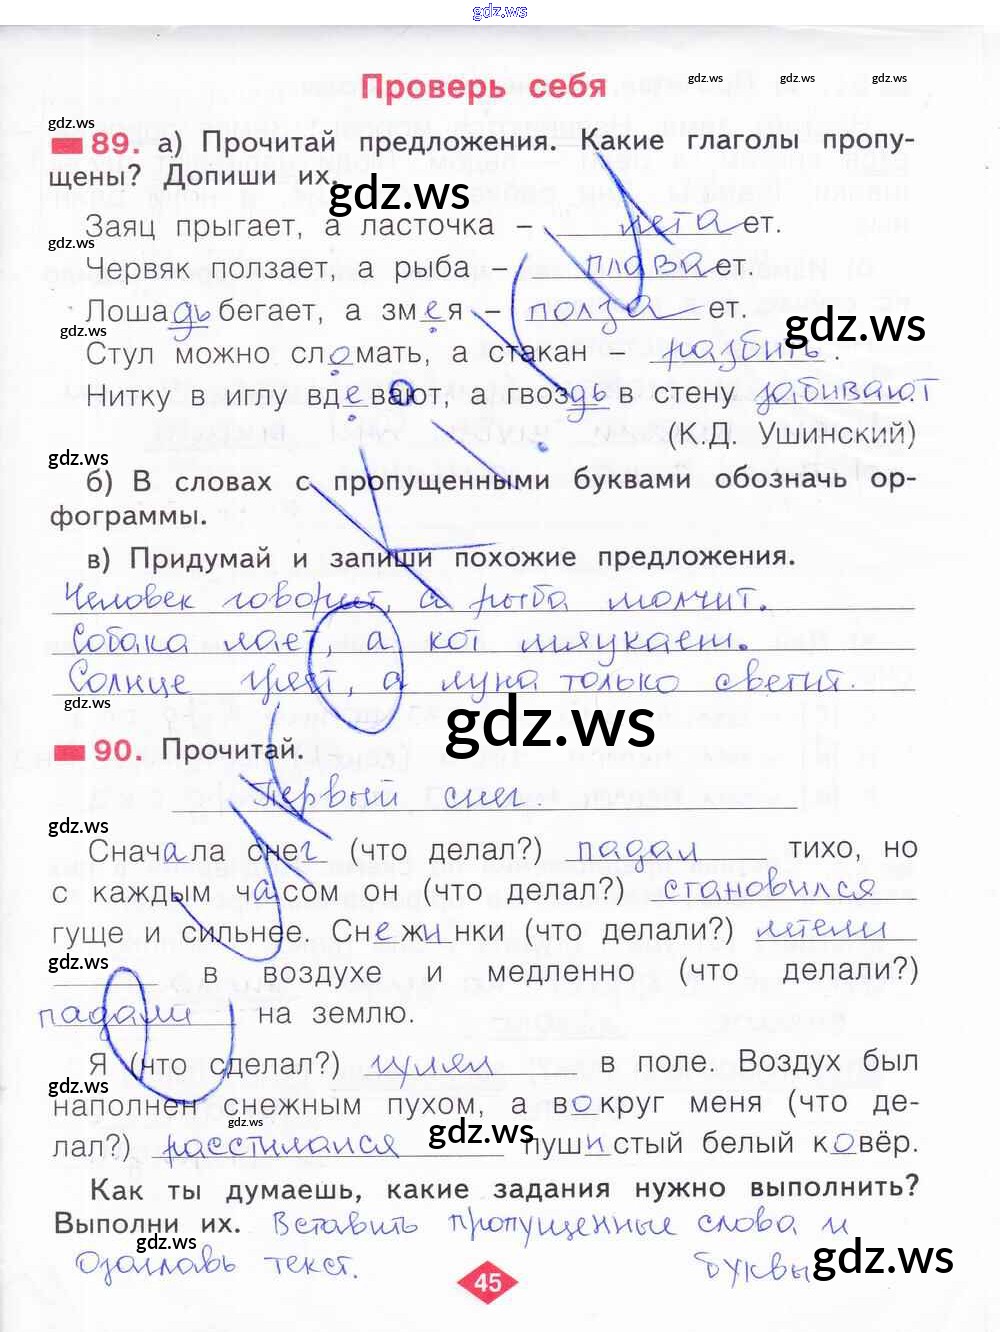 gdz.ws
Проверь себя
gdz.ws gdz.ws gdz.ws
gdz.ws
89. а) Прочитай предложения. Какие глаголы пропу-
щены? Допиши их.
gdz.ws
gdz.ws
Заяц прыгает, а ласточка – летает.
gdz.ws
Червяк ползает, а рыба – плавает.
Лошадь бегает, а змея – ползает.
gdz.ws
gdz.ws
Стул можно сломать, а стакан – разбить.
Нитку в иглу вдевают, а гвоздь в стену забивают
(К.Д. Ушинский)
gdz.ws
б) В словах с пропущенными буквами обозначь ор-
фограммы.
в) Придумай и запиши похожие предложения.
Человек говорит, а рыба молчит.
Собака лает, а кот мяукает.
Солнце греет, а луна только светит.
gdz.ws
gdz.ws
90. Прочитай.
Первый снег.
gdz.ws
Сначала снег (что делал?) падал тихо, но
с каждым часом он (что делал?) становился
gdz.ws
гуще и сильнее. Снежинки (что делали?) летели
gdz.ws
в воздухе и медленно (что делали?)
падали на землю.
Я (что сделал?) гулял в поле. Воздух был
gdz.ws
наполнен снежным пухом, а вокруг меня (что де-
gdz.ws
gdz.ws
лал?) расстилался пушистый белый ковёр.
Как ты думаешь, какие задания нужно выполнить?
Выполни их. Вставить пропущенные слова и
gdz.ws
gdz.ws
Озаглавь текст. буквы
45